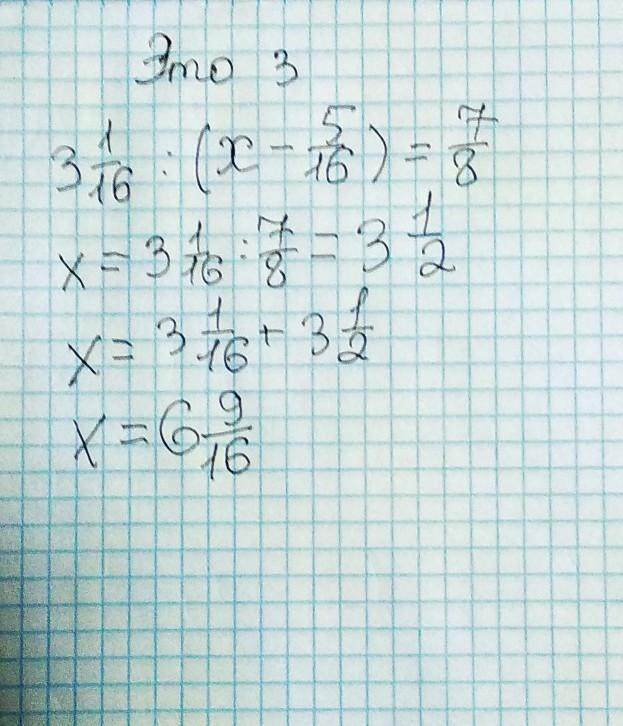 Это 3
3 1/16 : (x - 5/16) = 7/8
x = 3 1/16 : 7/8 = 3 1/2
x = 3 1/16 + 3 1/2
x = 6 9/16